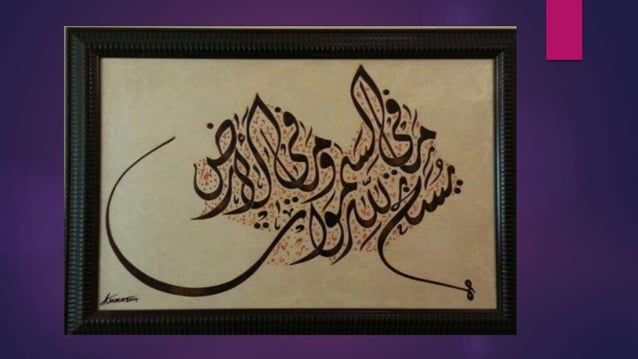 يسبح لله من في السموات ومن في الأرض